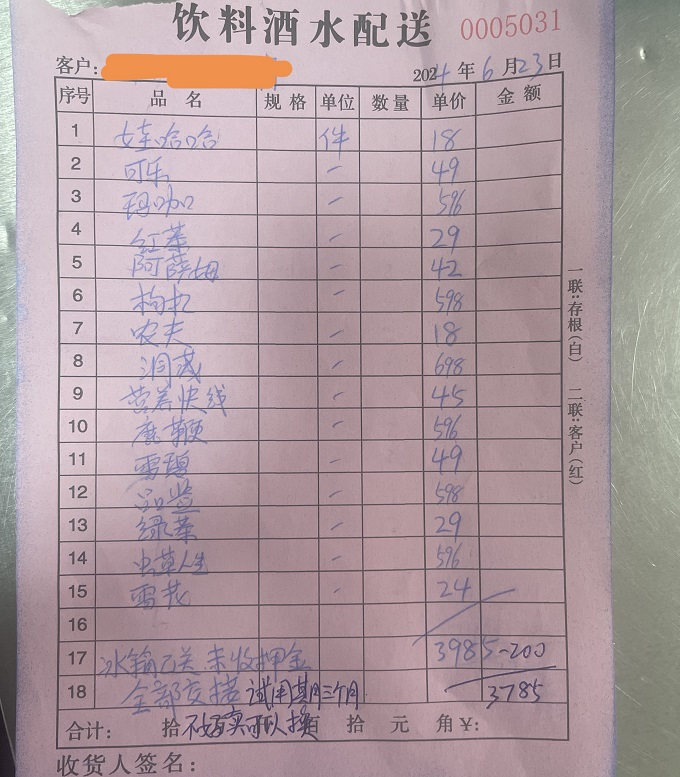 饮料酒水配送 0005031
客户: 2024年6月23日
序号 品名 规格 单位 数量 单价 金额
1 娃哈哈 件 18
2 可乐 一 49
3 玛咖 一 596
4 红茶 一 29
5 阿萨姆 一 42
6 枸杞 一 598
7 农夫 一 18
8 洞藏 一 698
9 营养快线 一 45
10 鹿鞭 一 596
11 雪碧 一 49
12 品鉴 一 598
13 绿茶 一 29
14 虫草人生 一 596
15 雪花 一 24
16
17 冰箱已送 未收押金 3985-200
18 全部交接 试用期三个月 3785
不好卖可以换
合计: 拾 佰 拾 元 角 ¥:
收货人签名:
一联:存根(白) 二联:客户(红)